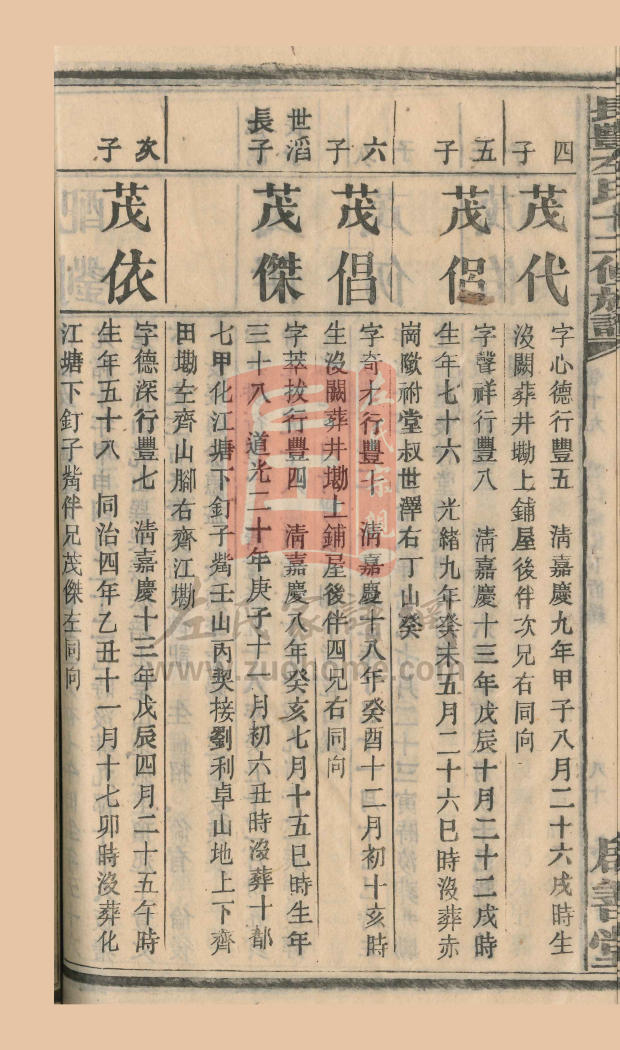 長豐左氏十二修族譜
善堂
四子
茂代
字心德行豐五 清嘉慶九年甲子八月二十六戌時生
沒闕葬井墈上鋪屋後伴次兄右同向
五子
茂侶
字聲祥行豐八 清嘉慶十三年戊辰十月二十二戌時
生年七十六 光緒九年癸未五月二十六巳時沒葬赤
崗隞祔堂叔世澤右丁山癸
六子
茂倡
字奇才行豐十 清嘉慶十八年癸酉十二月初十亥時
生沒闕葬井墈上鋪屋後伴四兄右同向
世滔長子
茂傑
字萃拔行豐四 清嘉慶八年癸亥七月十五巳時生年
三十八 道光二十年庚子十一月初六丑時沒葬十都
七甲化江塘下釘子觜壬山丙契接劉利卓山地上下齊
田墈左齊山腳右齊江墈
次子
茂依
字德深行豐七 清嘉慶十三年戊辰四月二十五午時
生年五十八 同治四年乙丑十一月十七卯時沒葬化
江塘下釘子觜伴兄茂傑左同向
左氏家譜網
www.zuohome.com